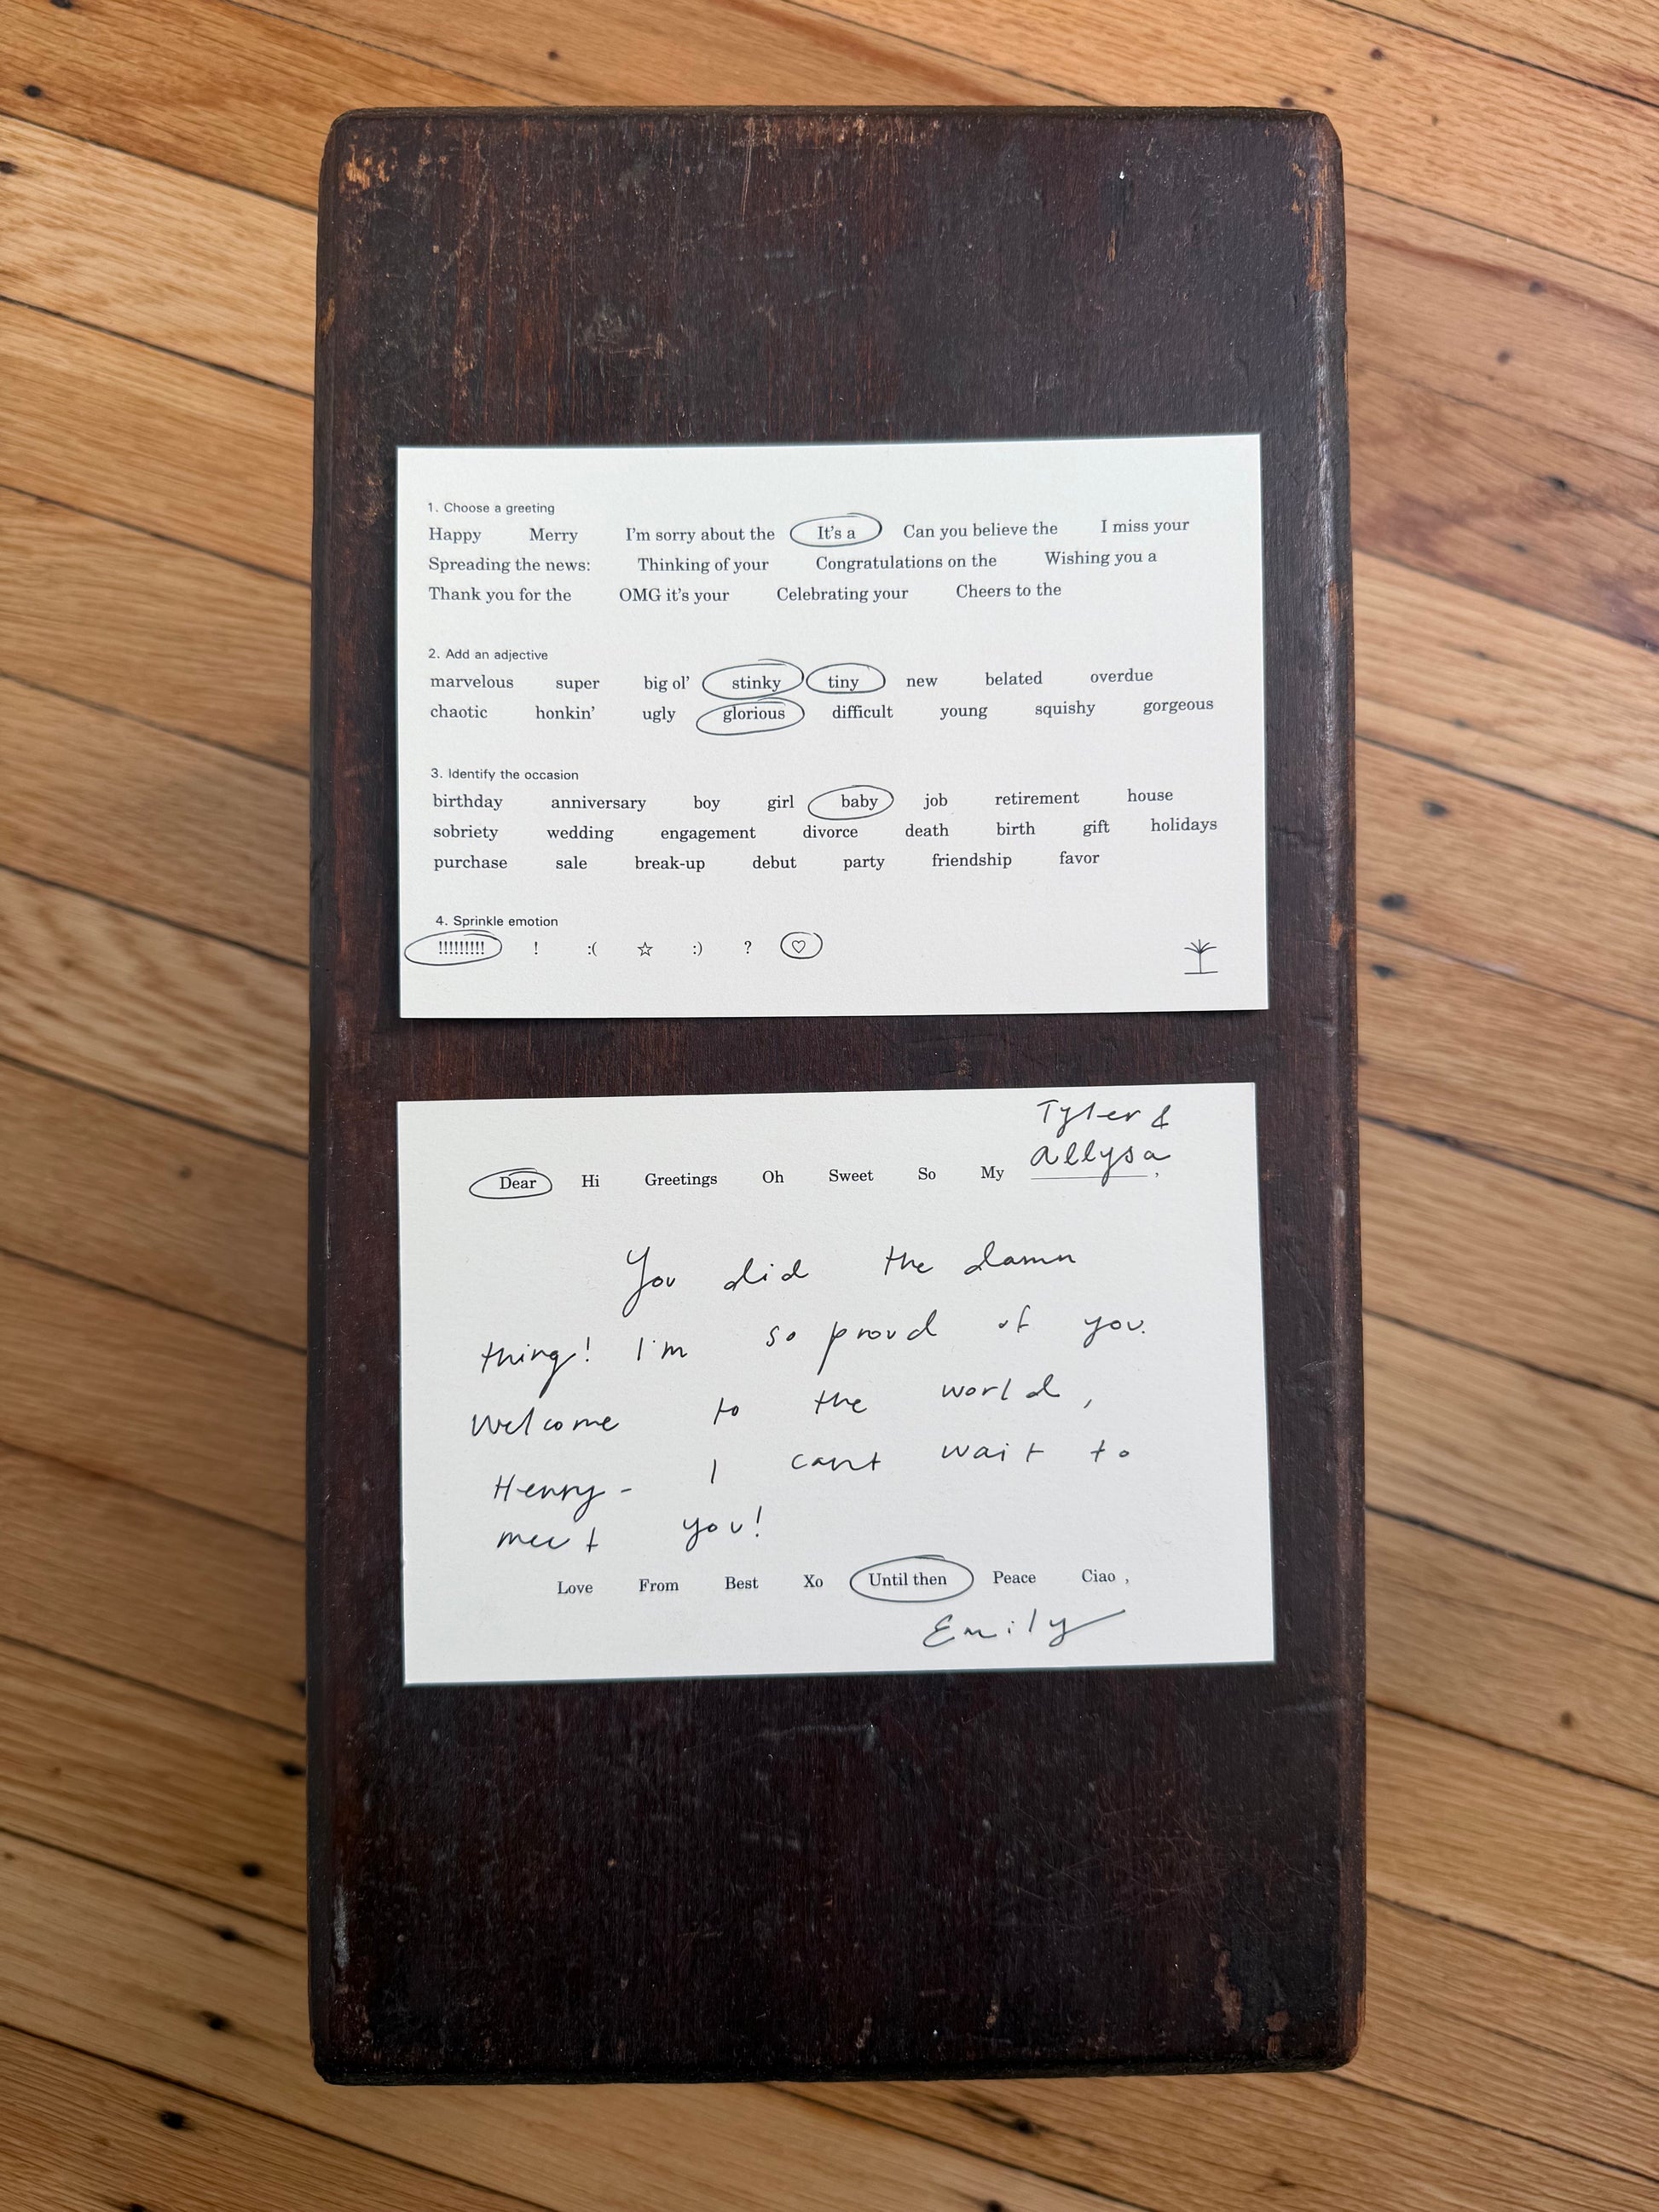 1. Choose a greeting
Happy Merry I'm sorry about the It's a Can you believe the I miss your
Spreading the news: Thinking of your Congratulations on the Wishing you a
Thank you for the OMG it's your Celebrating your Cheers to the
2. Add an adjective
marvelous super big ol' stinky tiny new belated overdue
chaotic honkin' ugly glorious difficult young squishy gorgeous
3. Identify the occasion
birthday anniversary boy girl baby job retirement house
sobriety wedding engagement divorce death birth gift holidays
purchase sale break-up debut party friendship favor
4. Sprinkle emotion
!!!!!!!!! ! :( ☆ :) ? ♡
Tyler &
Allysa
Dear Hi Greetings Oh Sweet So My ,
You did the damn
thing! I'm so proud of you.
Welcome to the world,
Henry - I cant wait to
meet you!
Love From Best Xo Until then Peace Ciao ,
Emily